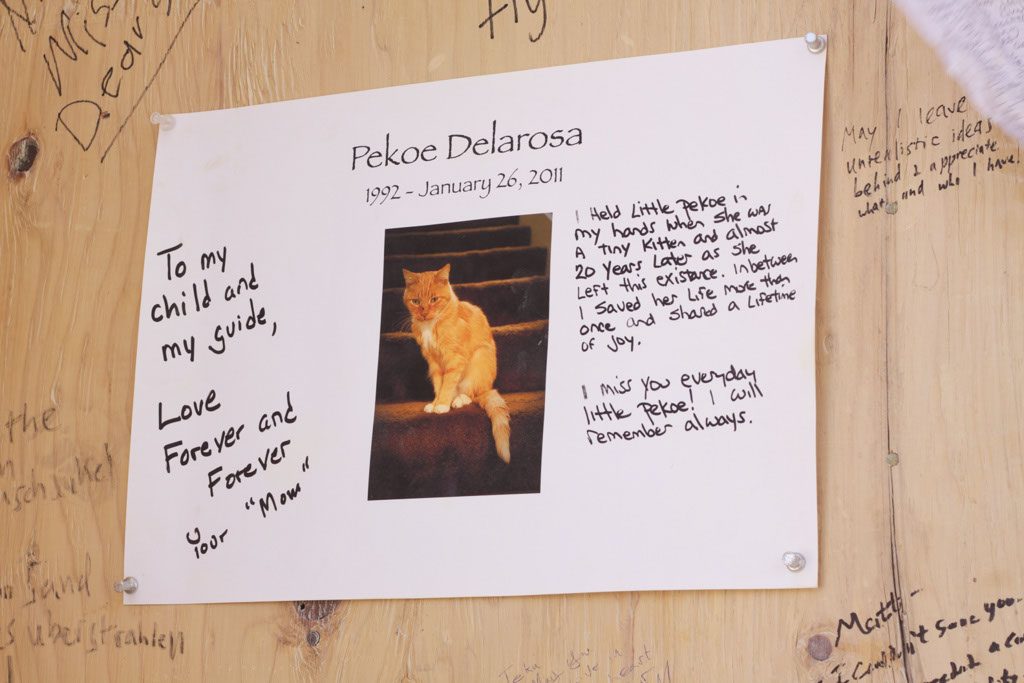 Dear
fly
Pekoe Delarosa
1992 - January 26, 2011
To my
child and
my guide,
Love
Forever and
Forever
Your "Mom"
I Held Little Pekoe in
my hands when she was
A Tiny Kitten and almost
20 years Later as she
Left this existance. Inbetween
I saved her Life more then
once and shared a Lifetime
of Joy.
I miss you everyday
little Pekoe! I will
remember always.
May I leave
unrealistic ideas
behind & appreciate
what and who I have.
the
Sand
überstrahlen
Matt -
I Couldn't save you.